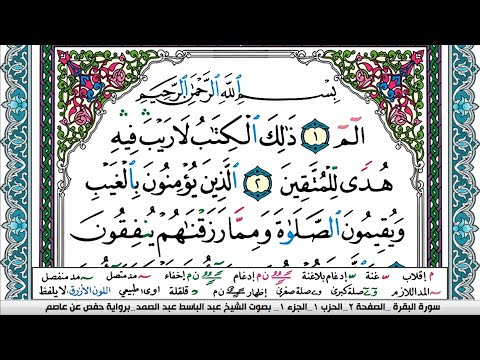 بِسْمِ اللَّهِ الرَّحْمَٰنِ الرَّحِيمِ
الٓمٓ ١ ذَٰلِكَ الْكِتَٰبُ لَا رَيْبَ فِيهِ
هُدًى لِّلْمُتَّقِينَ ٢ الَّذِينَ يُؤْمِنُونَ بِالْغَيْبِ
وَيُقِيمُونَ الصَّلَوٰةَ وَمِمَّا رَزَقْنَٰهُمْ يُنفِقُونَ
م إقلاب غنة إدغام بلاغنة ن م إدغام ن م إخفاء مد متصل مد منفصل
المد اللازم صلة كبرى صلة صغرى إظهار ن م قلقلة اوى، طبيعي اللون الأزرق، لا يلفظ
سورة البقرة _ الصفحة ٢ _ الحزب ١ _ الجزء ١ _ بصوت الشيخ عبد الباسط عبد الصمد _ برواية حفص عن عاصم